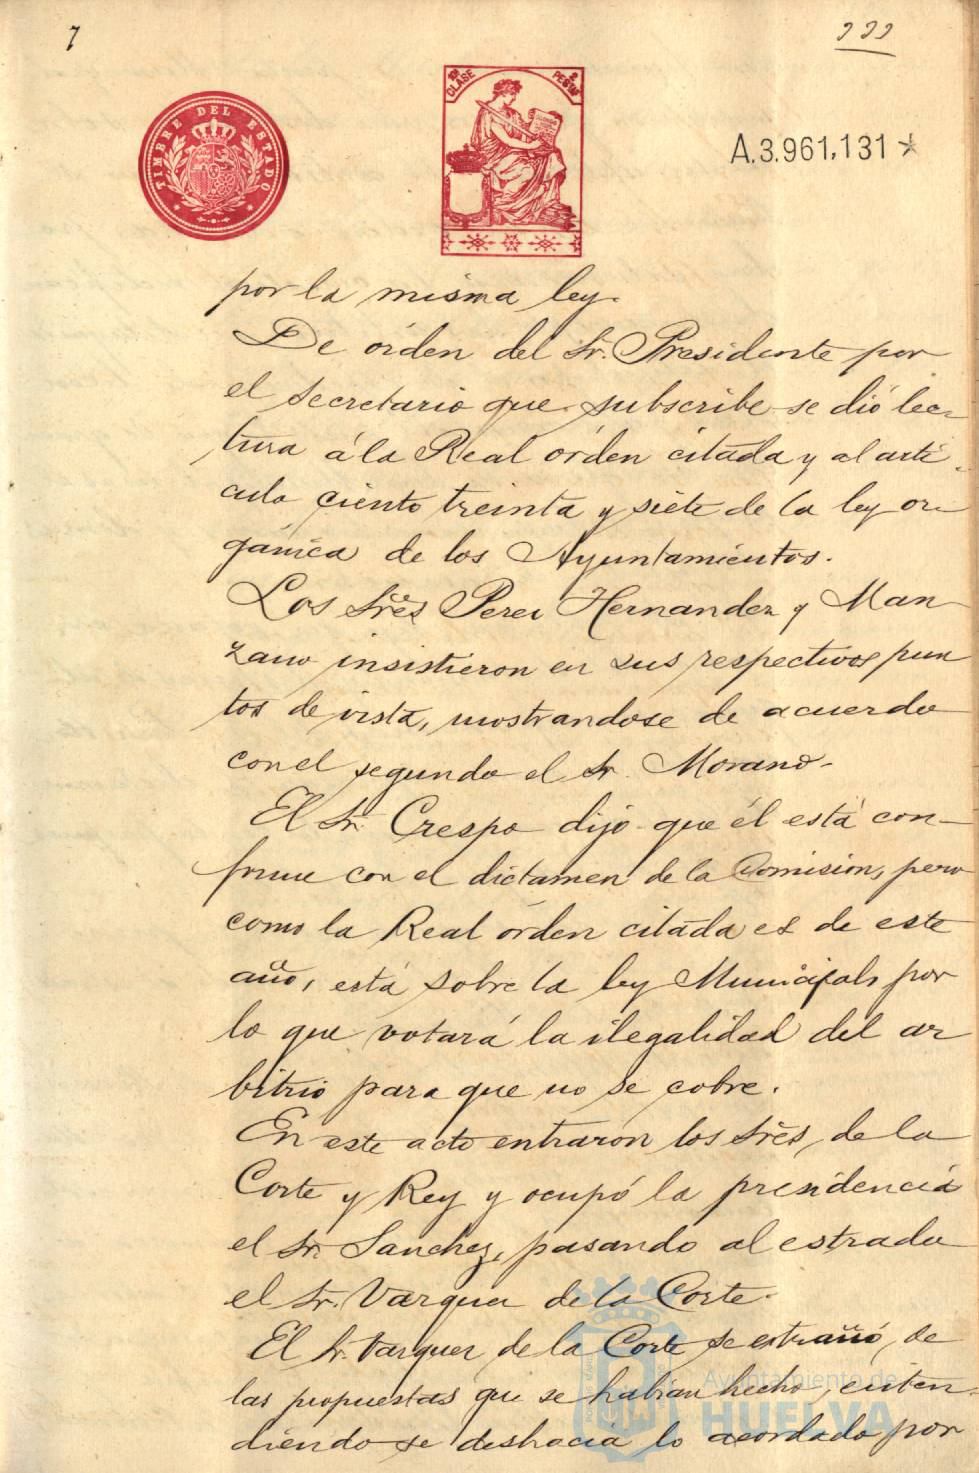 7
999
TIMBRE DEL ESTADO
CLASE
PESTAS
A.3.961,131
por la misma ley.
De órden del Sr. Presidente por
el Secretario que subscribe se dió lec-
tura á la Real órden citada y al arti-
culo ciento treinta y siete de la ley or-
gánica de los Ayuntamientos.
Los Sres Perez Hernandez y Man
zano insistieron en sus respectivos pun
tos de vista, mostrandose de acuerdo
con el segundo el Sr. Morano-
El Sr. Crespo dijo que él está con-
forme con el dictamen de la Comisión, pero
como la Real órden citada es de este
año, está sobre la ley Municipal, por
lo que votará la ilegalidad del ar
bitrio para que no se cobre.
En este acto entraron los Sres, de la
Corte y Rey y ocupó la presidencia
el Sr. Sanchez, pasando al estrado
el Sr. Vazquez de la Corte.
El Sr. Vazquez de la Corte se estrañó, de
las propuestas que se habian hecho, enten-
diendo se deshacia lo acordado por
Ayuntamiento de
HUELVA